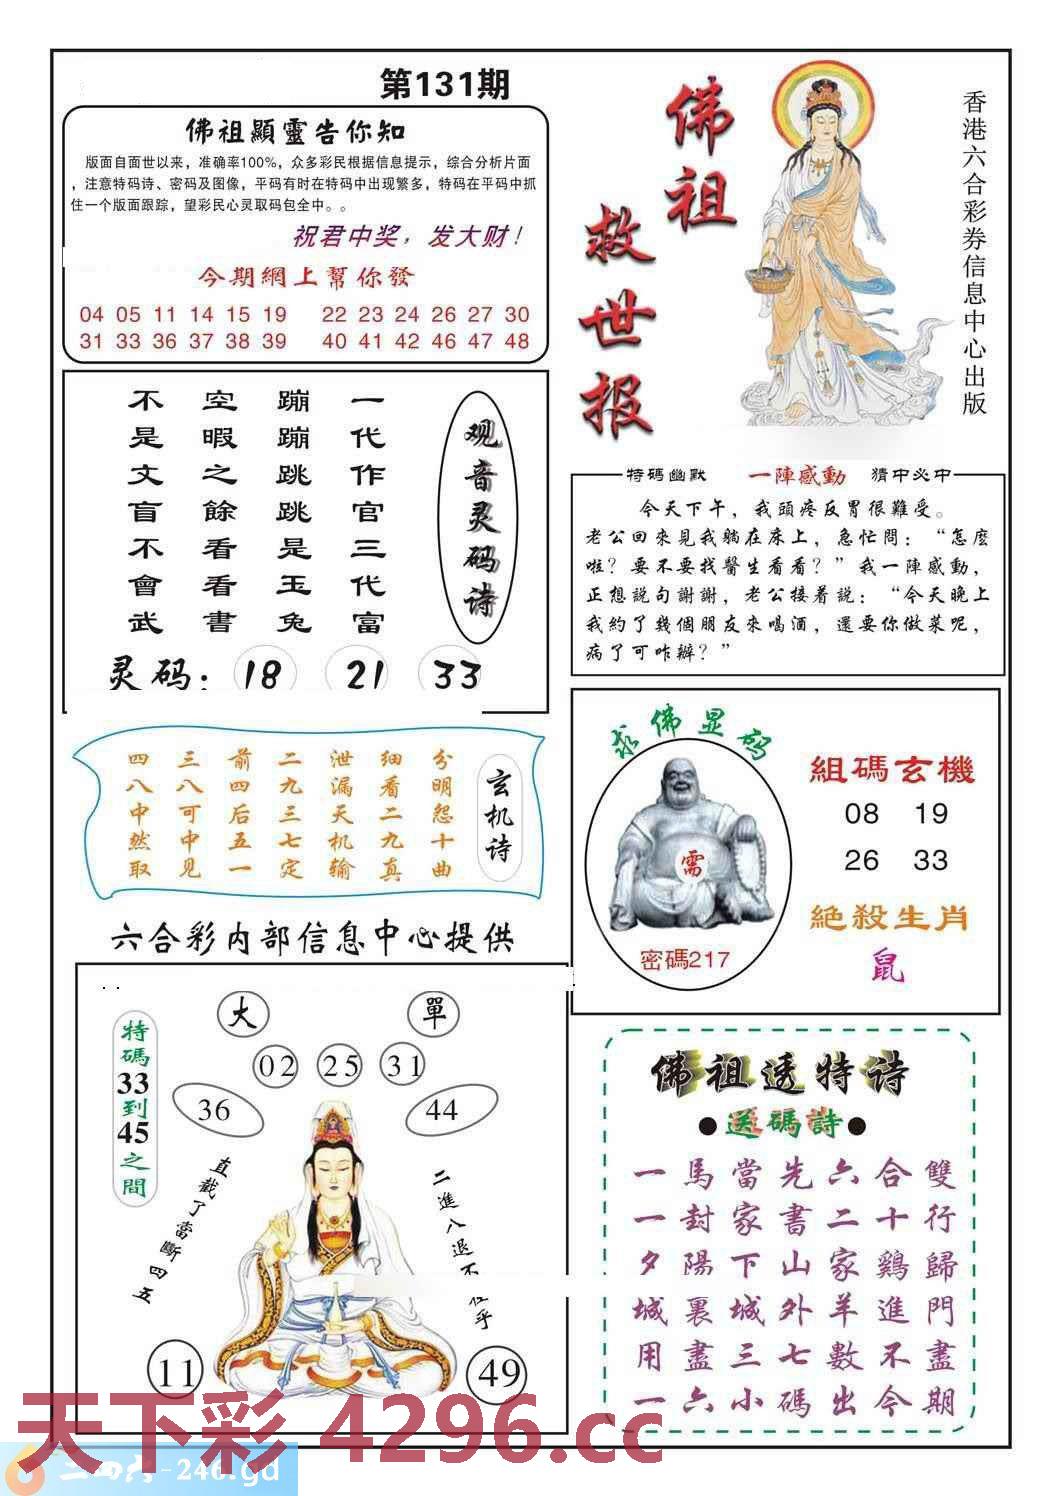 第131期
佛祖顯靈告你知
版面自面世以来，准确率100%，众多彩民根据信息提示，综合分析片面
，注意特码诗、密码及图像，平码有时在特码中出现繁多，特码在平码中抓
住一个版面跟踪，望彩民心灵取码包全中。。
祝君中奖，发大财！
今期網上幫你發
04 05 11 14 15 19 22 23 24 26 27 30
31 33 36 37 38 39 40 41 42 46 47 48
佛祖
救世报
香港六合彩券信息中心出版
观音灵码诗
一代作官三代富
蹦蹦跳跳是玉兔
空暇之餘看看書
不是文盲不會武
灵码：18 21 33
特碼幽默 一陣感動 猜中必中
今天下午，我頭疼反胃很難受。
老公回來見我躺在床上，急忙問：“怎麽
啦？要不要找醫生看看？”我一陣感動，
正想説句謝謝，老公接着説：“今天晚上
我約了幾個朋友來喝酒，還要你做菜呢，
病了可咋辦？”
玄机诗
分明怨十曲
细看二九真
泄漏天机输
二九三七定
前四后五一
三八可中见
四八中然取
求佛显码
需
密碼217
組碼玄機
08 19
26 33
絶殺生肖
鼠
六合彩内部信息中心提供
大 單
02 25 31
36 44
特碼33到45之間
直截了當斷四五
二進八退不在乎
11 49
佛祖透特诗
●送碼詩●
一馬當先六合雙
一封家書二十行
夕陽下山家鷄歸
城裏城外羊進門
用盡三七數不盡
一六小碼出今期
天下彩 4296.cc
二四六-246.gd